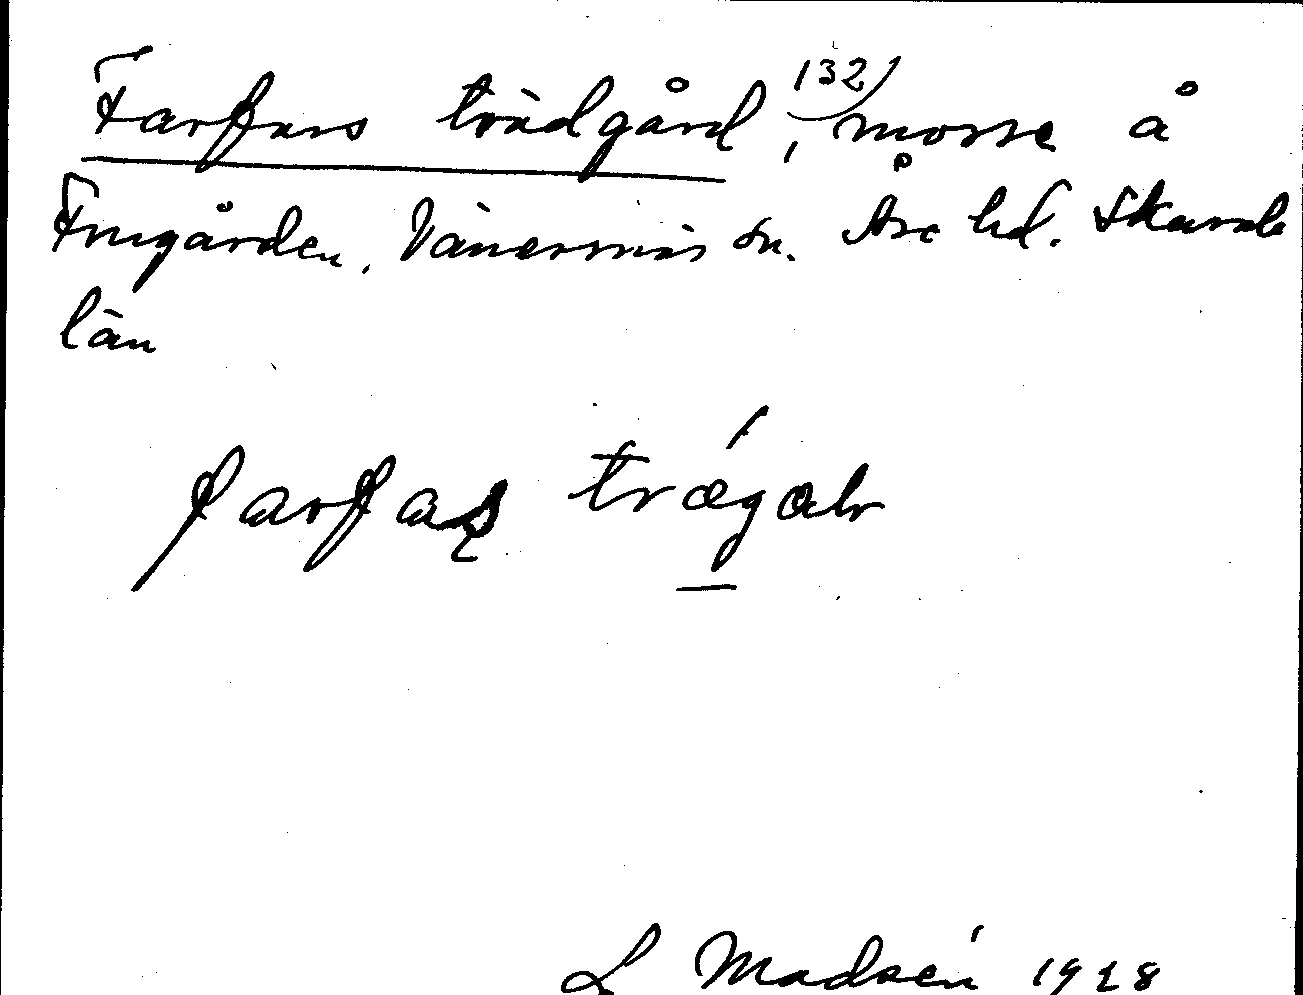 Farfars trädgård, 132) mosse å
Frugården, Vänersnäs sn. Åse hd. Skarab.
län
farfas trægalr
L Madsén 1928